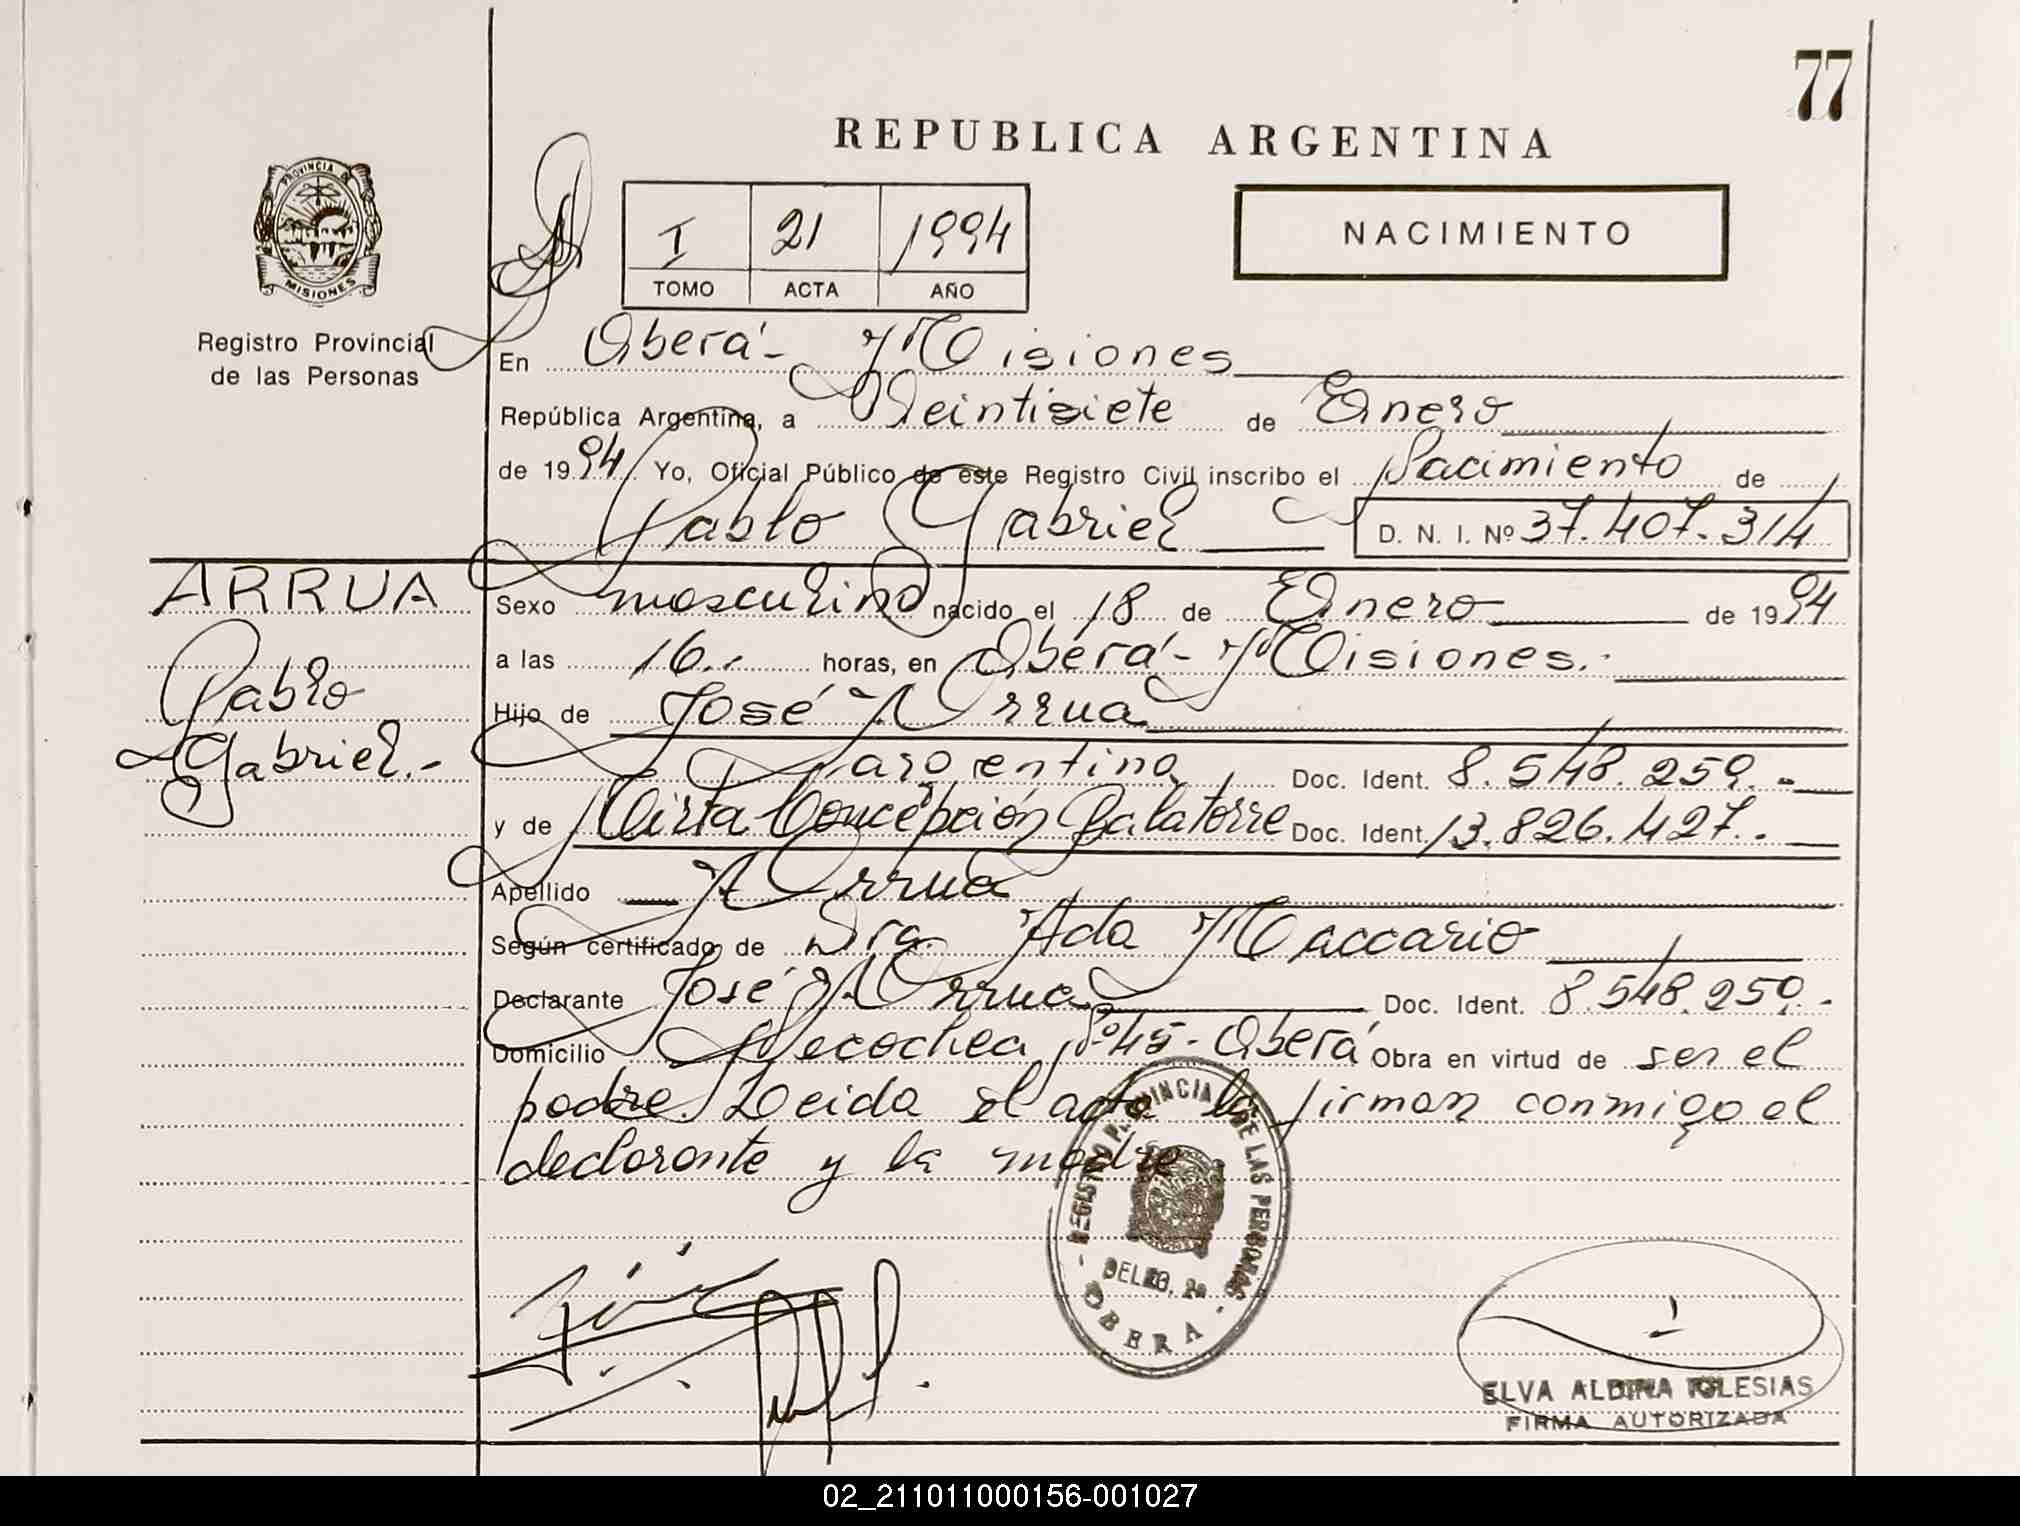 77
REPUBLICA ARGENTINA
PROVINCIA DE
MISIONES
Registro Provincial
de las Personas
I 21 1994
TOMO ACTA AÑO
NACIMIENTO
En Oberá - Misiones
República Argentina, a Veintisiete de Enero
de 1994 Yo, Oficial Público de este Registro Civil inscribo el Nacimiento de
Pablo Gabriel D. N. I. Nº 37.407.314
ARRUA
Pablo
Gabriel.-
Sexo masculino nacido el 18 de Enero de 1994
a las 16.. horas, en Oberá - Misiones.-
Hijo de José Arrua
argentino Doc. Ident. 8.548.259.-
y de Mirta Concepción Balatorre Doc. Ident. 13.826.427.-
Apellido Arrua
Según certificado de Dra. Ada Maccario
Declarante José Arrua Doc. Ident. 8.548.259.-
Domicilio Necochea Nº 45 - Oberá Obra en virtud de ser el
padre. Leida el acta la firman conmigo el
declarante y la madre
REGISTRO PROVINCIAL DE LAS PERSONAS
OBERA
ELVA ALBINA IGLESIAS
FIRMA AUTORIZADA
02_211011000156-001027